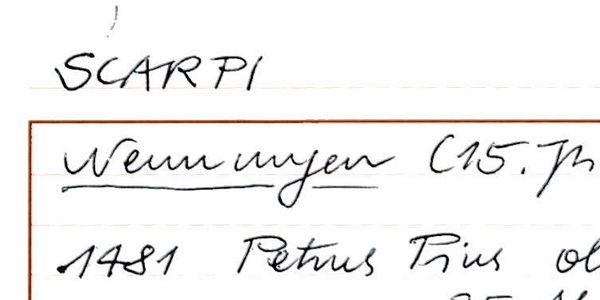 SCARPI
Wenningen (15. Jh
1481 Petrus Pius ol